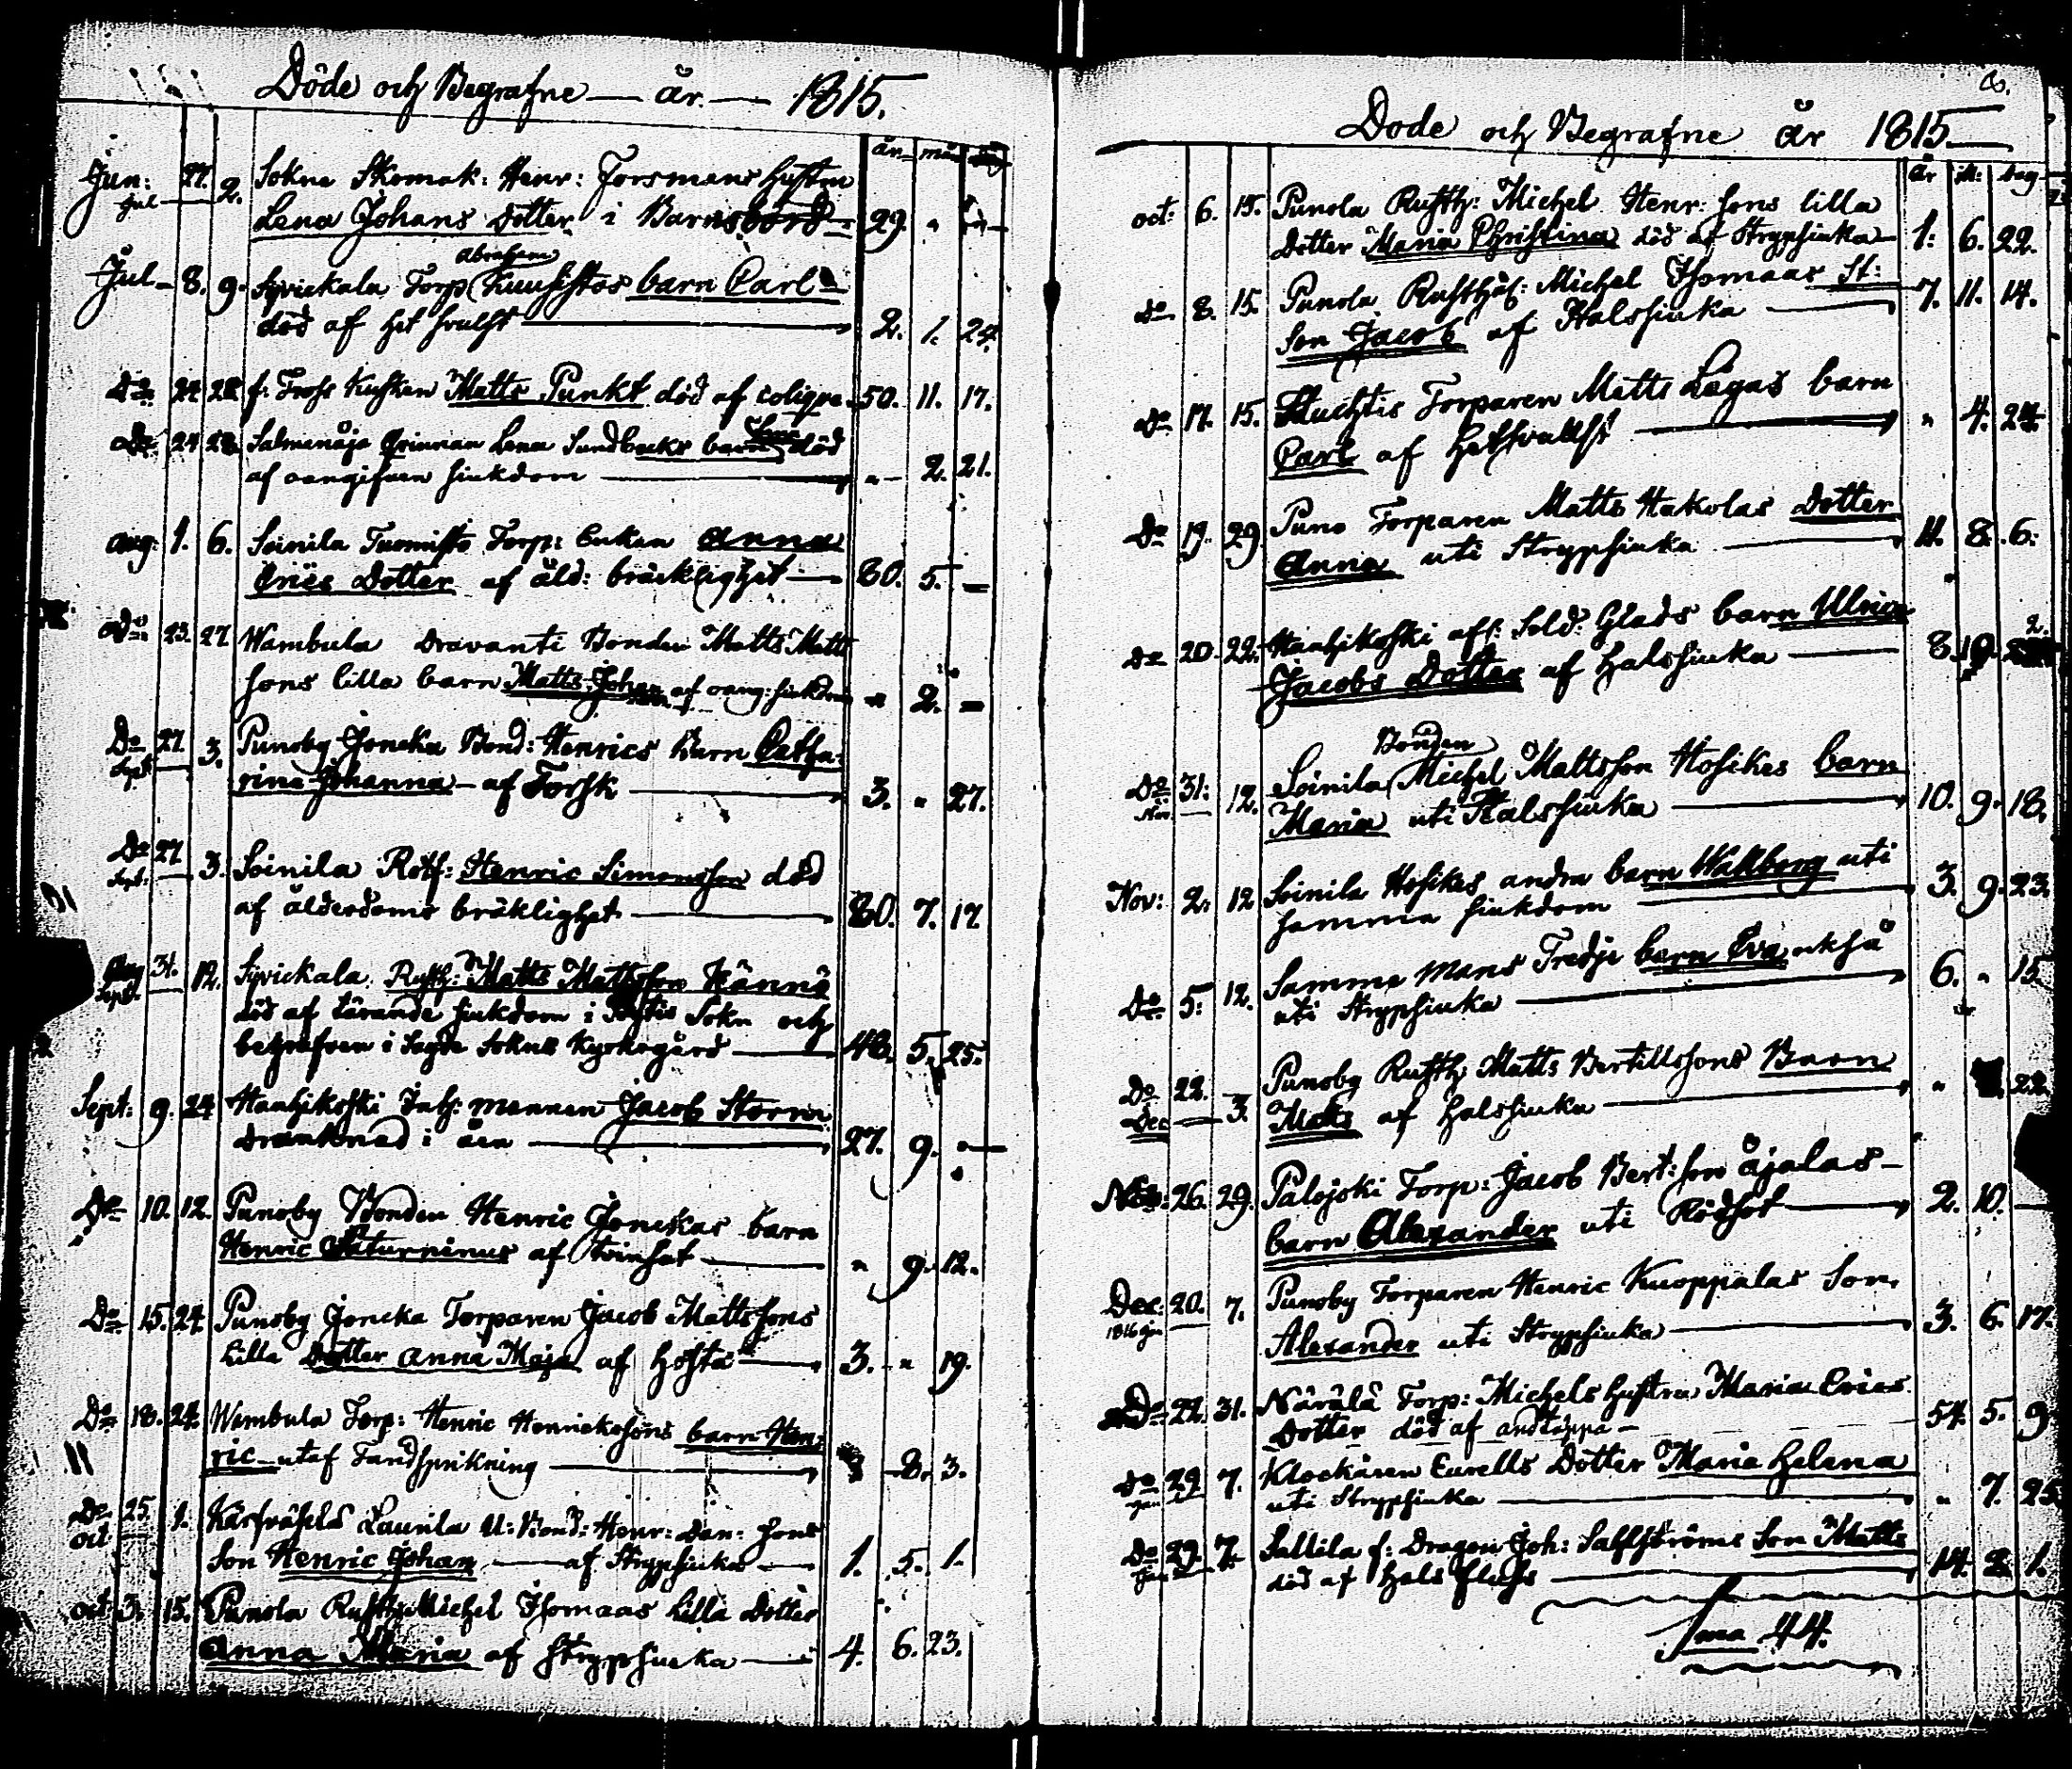 Döde och Begrafne — år — 1815.
år mån dag
Jun: 27. Sokne Skomak: Henr: Forsmans hustru
Jul — 2. Lena Johans Dotter i Barnsbörd — 29. "
Abraham
Jul — 8. 9. Syvickala Torp Kuusistos barn Carl
död af het svulst — 2. 1. 24.
Do 24. 28. f: Tross Kusken Matts Punkt död af colique 50. 11. 17.
Do 24 28 Salmenåja Qvinnan Lena Sundbecks barn död
af oangifven siukdom — " 2. 21.
Aug: 1. 6. Soinila Tuomisto Torp: Enkan Anna
Erics Dotter af åld: bräcklighet — 80. 5. —
Do 23. 27 Wambula Dravanti Bonden Matts Matts
sons lilla barn Matts Johan af oang: siukdom " 2. —
Do 27. Punoby Joncka Bond: Henrics Barn Catha-
Sept — 3. rina Johanna — af Torsk — 3. " 27.
Do 27 Soinila Rotf: Henric Simonsson död
Sept: — 3. af ålderdoms bräklighet — 80. 7. 17.
Aug 31. Syvickala Rusth: Matts Mattsson Kännö
Sept. — 12. död af tärande siukdom i Sokn och
begrafven i Sagde Soknes Kyrkogård — 48. 5. 25.
Sept: 9. 24 Haahjikoski Inh: mannen Jacob Storm
Dranknad i åen — 27. 9. " —
Do 10. 12. Punoby Bonden Henric Jonckas barn
Henric Saturninus af tvinsot — " 9. 12.
Do 15. 24. Punoby Joncka Torparen Jacob Mattssons
Lilla Dotter Anna Maja af Hosta — 3. " 19.
Do 18. 24. Wambula Torp: Henric Henrickssons barn Hen-
ric — utaf Tandsprikning — 8. 3.
Do 25. Laurila U: Bond: Henr: Dan: sons
oct — 1. Son Henric Johan — af Strypsiuka — 1. 5. 1.
oct 3. 15. Punola Rusth: Michel Thomaas Lilla Dotter
Anna Maria af Strypsiuka — 4. 6. 23.
Dode och Begrafne år 1815 —
år M: dag
oct: 6. 15. Punola Rusth: Michel Henr: sons lilla
Dotter Maria Christina död af Strypsiuka — 1: 6. 22.
Do 8. 15. Punola Rusthål: Michel Thomaas St:
Son Jacob af Halssiuka — 7. 11. 14.
Do 17. 15. Torparen Matts Lågas barn
Carl af Hetsvullst — " 4. 24.
Do 19. 29. Puno Torparen Matts Hakolas Dotter
Anna uti Strypsiuka — 11. 8. 6.
Do 20. 22. Haahjikoski afs: Sold: Glads barn Ulrica
Jacobs Dotter af halssiuka — 8. 10. 2.
Bonden
Do 31. Soinila Michel Mattsson Hosikes barn
Nov. — 12. Maria uti Halssiuka — 10. 9. 18.
Nov: 2. 12 Soinila Hosikes andra barn Wallborg uti
samma siukdom — 3. 9. 23.
Do 5. 12. Samma mans Tredje barn Eva också
uti Strypsiuka — 6. " 15
Do 22. Punoby Rusth: Matts Bertillssons Barn
Dec — 3. Mats af halssiuka — " 22
Nov: 26. 29. Palojski Torp: Jacob Bert: son Äjalas —
barn Alexander uti Rödsot — 2. 10. —
Dec: 20. Punoby Torparen Henric Knoppalas Son
1816 Jan — 7. Alexander uti Strypsiuka — 3. 6. 17.
Do 22. 31. Närälä Torp: Michels hustru Maria Erics
Dotter död af andtäppa — 54. 5. 9
Do 29. 7. Klockaren Eurells Dotter Maria Helena
Jan uti Strypsiuka — " 7. 25
Do 29. 7. Sallila f: Dragon Joh: Sahlströms Son Matts
Jan — död af halsfluss — 14. 2. 1.
Sma 44.